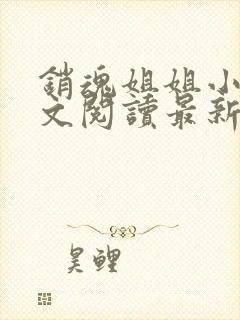 銷魂姐姐小
文閱讀最新
昊鯉